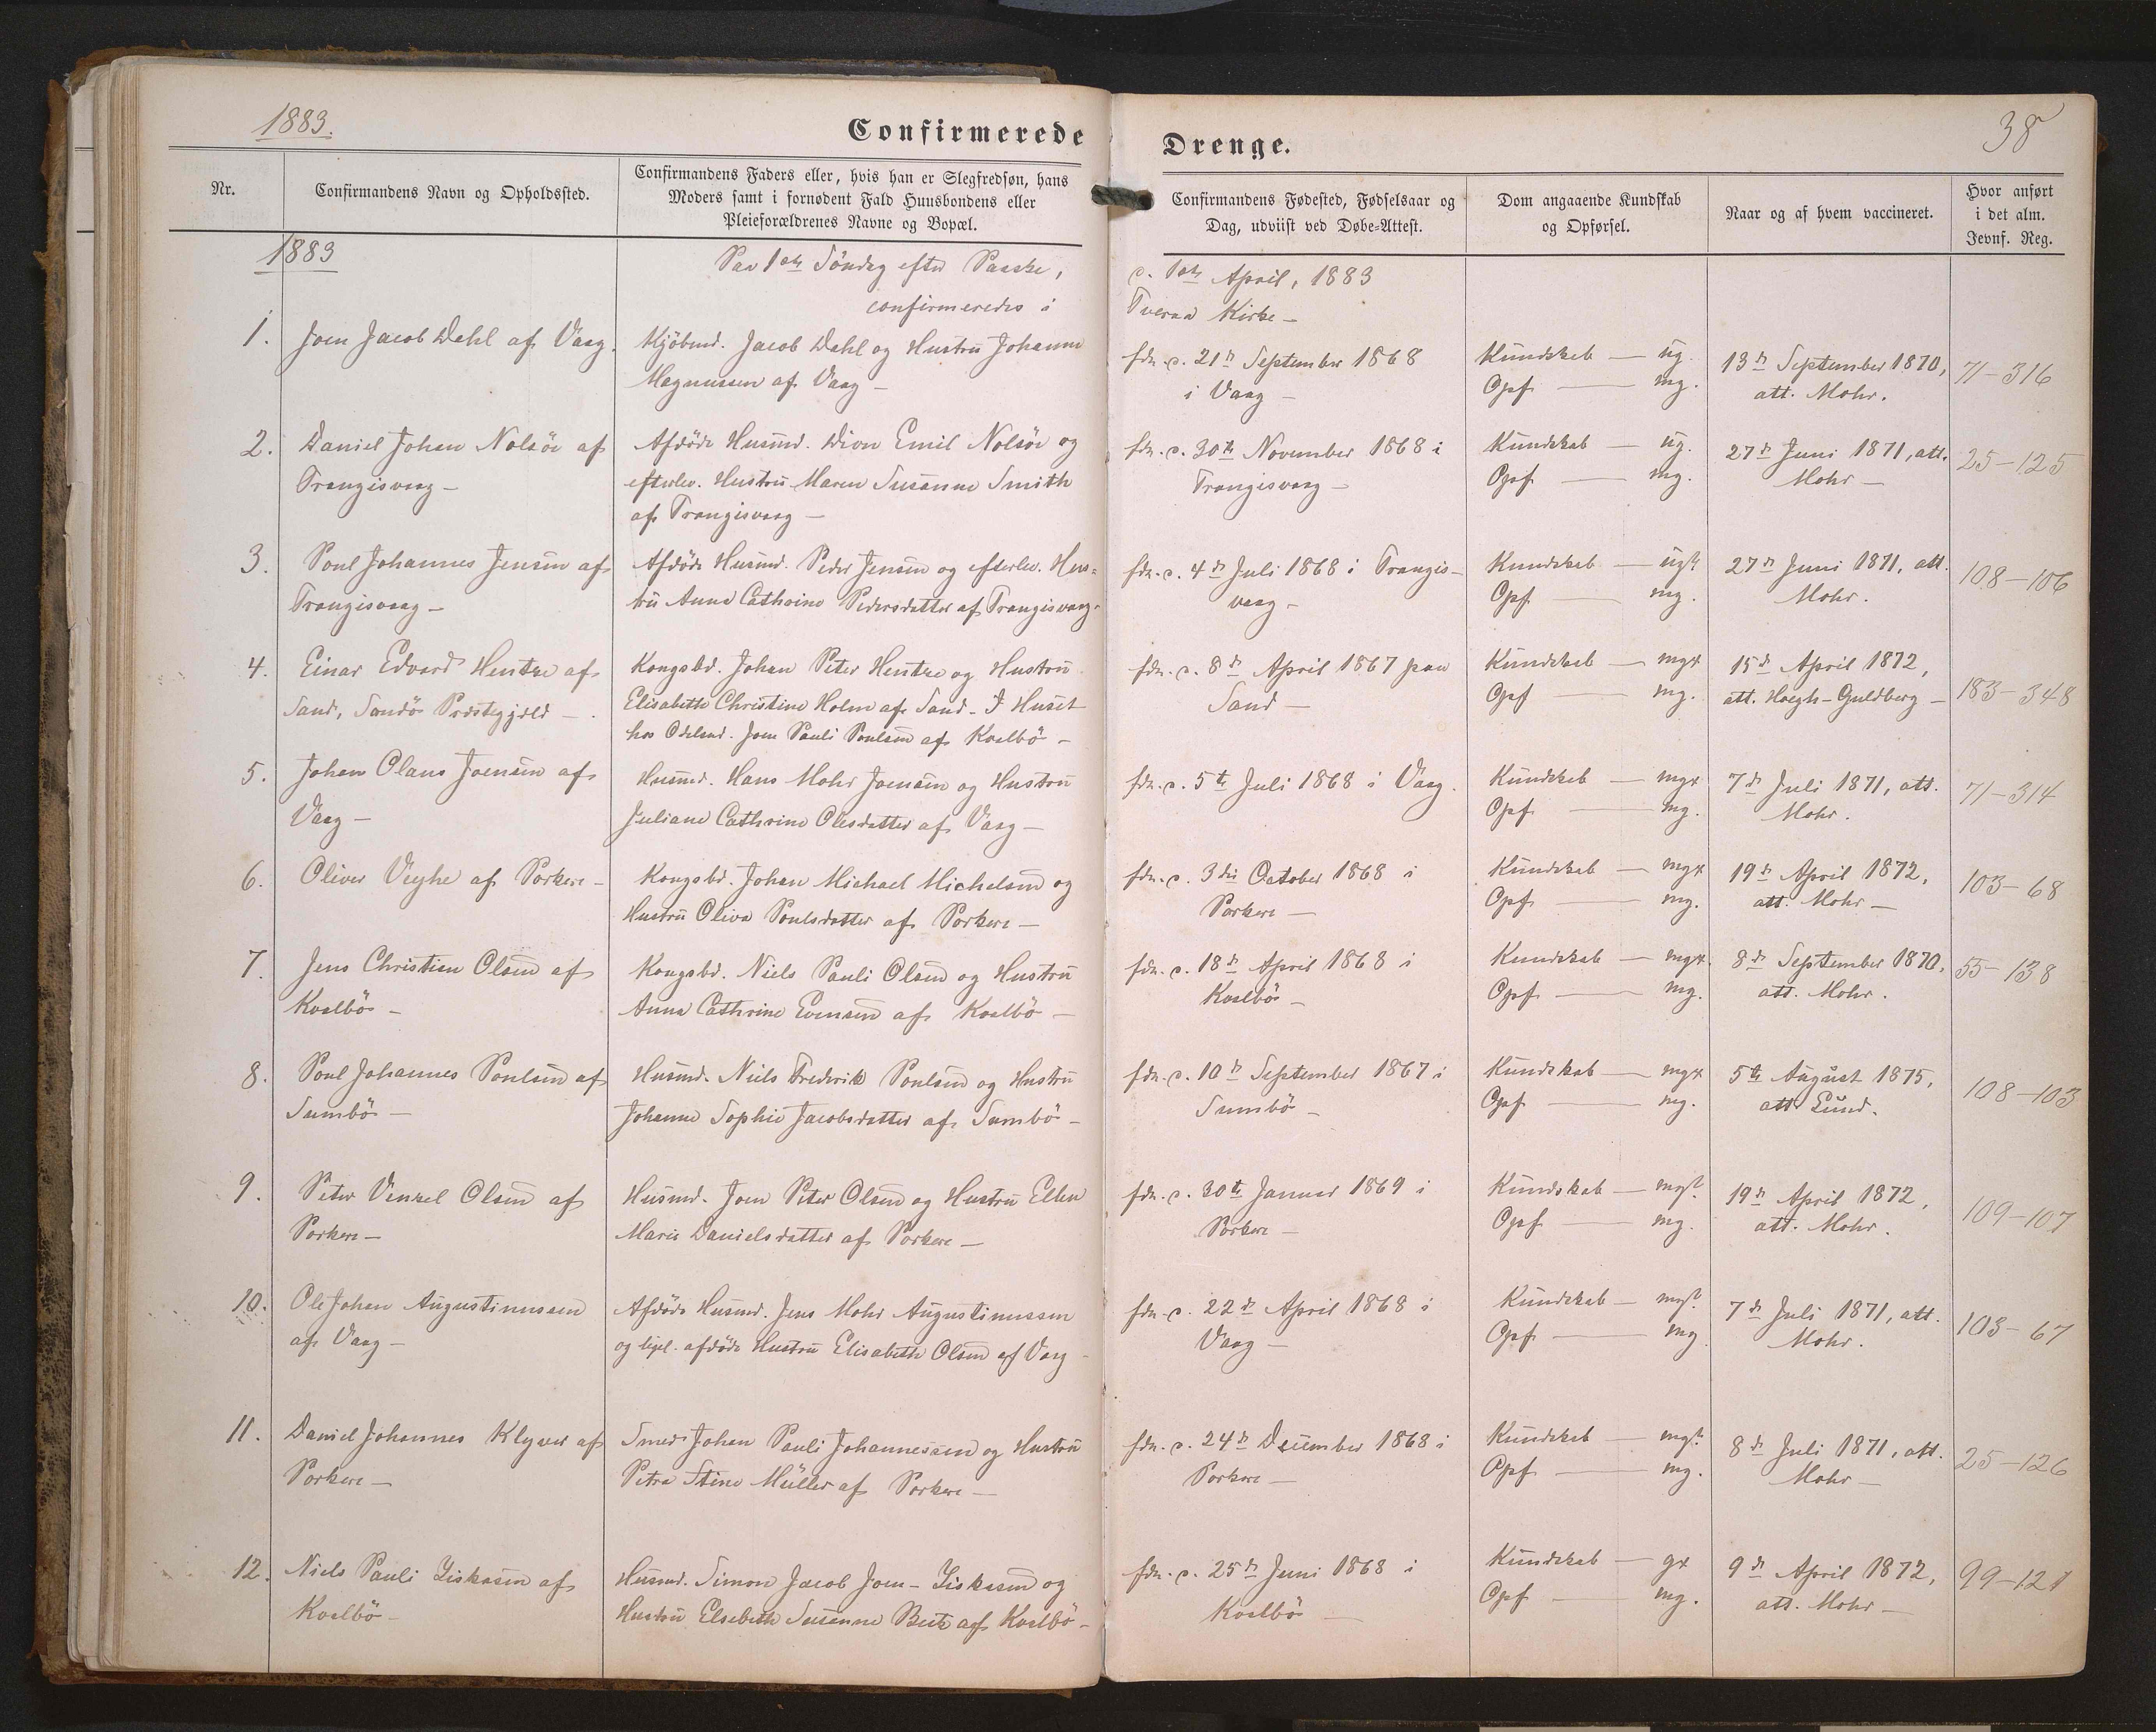 1883.
Confirmerede Drenge.
38
Nr.
Confirmandens Navn og Opholdssted.
Confirmandens Faders eller, hvis han er Slegfredsøn, hans
Moders samt i fornødent Fald Huusbondens eller
Pleieforældrenes Navne og Bopæl.
Confirmandens Fødested, Fødselsaar og
Dag, udviist ved Døbe-Attest.
Dom angaaende Kundskab
og Opførsel.
Naar og af hvem vaccineret.
Hvor anført
i det alm.
Jevnf. Reg.
1883
Paa 1ste Söndag efter Paaske,
confirmeredes i
d. 1ste April, 1883
Tveraa Kirke –
1.
Joen Jacob Dahl af Vaag.
Kjöbmd. Jacob Dahl og Hustru Johanne
Magnussen af Vaag –
fdt. d. 21de September 1868
i Vaag –
Kundskab — ug.
Opf. — mg.
13de September 1870,
att. Mohr.
71–316
2.
Daniel Johan Nolsöe af
Trangisvaag –
Afdöde Husmd. Dion Emil Nolsöe og
efterlev. Hustru Maren Susanne Smith
af Trangisvaag –
fdt. d. 30te November 1868 i
Trangisvaag –
Kundskab — ug.
Opf — mg.
27de Juni 1871, att.
Mohr –
25–125
3.
Poul Johannes Jensen af
Trangisvaag –
Afdöde Husmd. Peder Jensen og efterlev. Hus-
tru Anna Cathrine Pedersdatter af Trangisvaag –
fdt. d. 4de Juli 1868 i Trangis-
vaag –
Kundskab — ug?
Opf. — mg.
27de Juni 1871, att.
Mohr.
108–106
4.
Einar Edvard Hentze af
Sand, Sandö Præstegjæld –
Kongsbd. Johan Peter Hentze og Hustru
Elisabeth Christine Holm af Sand – I Huset
hos Odelsmd. Joen Pauli Poulsen af Kvalbö –
fdt. d. 8de April 1867 paa
Sand –
Kundskab — mgx
Opf — mg.
15de April 1872,
att. Høegh-Guldberg –
183–348
5.
Johan Olaus Joensen af
Vaag –
Husmd. Hans Mohr Joensen og Hustru
Juliane Cathrine Olesdatter af Vaag –
fdt. d. 5te Juli 1868 i Vaag.
Kundskab — mgx
Opf. — mg.
7de Juli 1871, att.
Mohr.
71–314
6.
Oliver Veyhe af Porkere –
Kongsbd. Johan Michael Michelsen og
Hustru Oliva Poulsdatter af Porkere –
fdt. d. 3die October 1868 i
Porkere –
Kundskab — mgx
Opf. — mg.
19de April 1872,
att. Mohr –
103–68
7.
Jens Christian Olsen af
Kvalbö –
Kongsbd. Niels Pauli Olsen og Hustru
Anna Cathrine Evensen af Kvalbö –
fdt. d. 18de April 1868 i
Kvalbö –
Kundskab — mgx.
Opf. — mg.
8de September 1870,
att. Mohr.
55–138
8.
Poul Johannes Poulsen af
Sumbö –
Husmd. Niels Frederik Poulsen og Hustru
Johanne Sophie Jacobsdatter af Sumbö –
fdt. d. 10de September 1867 i
Sumbö –
Kundskab — mgx
Opf. — mg.
5te August 1875,
att. Lund.
108–103
9.
Peter Venzel Olsen af
Porkere –
Husmd. Joen Peter Olsen og Hustru Ellen
Marie Danielsdatter af Porkere –
fdt. d. 30te Januar 1869 i
Porkere –
Kundskab — mg?
Opf. — mg.
19de April 1872,
att. Mohr.
109–107
10.
Ole Johan Augustinussen
af Vaag –
Afdöde Husmd. Jens Mohr Augustinussen
og ligel. afdöde Hustru Elisabeth Olsen af Vaag –
fdt. d. 22de April 1868 i
Vaag –
Kundskab — mg?
Opf. — mg
7de Juli 1871, att.
Mohr.
103–67
11.
Daniel Johannes Klyver af
Porkere –
Smed Johan Pauli Johannessen og Hustru
Petra Stine Müller af Porkere –
fdt. d. 24de December 1868 i
Porkere –
Kundskab — mg?
Opf. — mg.
8de Juli 1871, att.
Mohr –
25–126
12.
Niels Pauli Liskasen af
Kvalbö –
Husmd. Simon Jacob Joen-Liskasen og
Hustru Elsebeth Susanne Beck af Kvalbö –
fdt. d. 25de Juni 1868 i
Kvalbö –
Kundskab — gx
Opf. — mg.
9de April 1872,
att. Mohr –
99–121